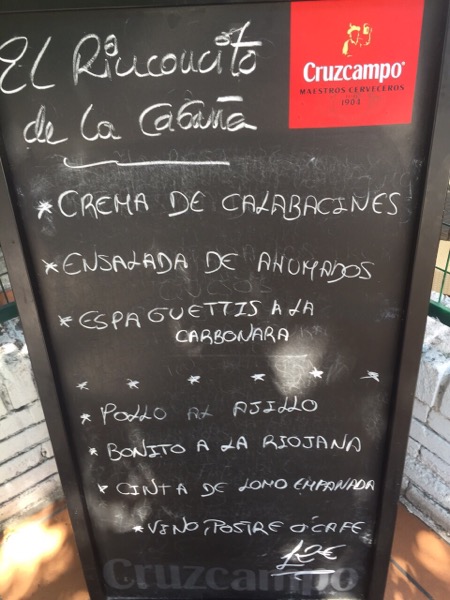 EL Rinconcito
de La Cabaña
Cruzcampo®
MAESTROS CERVECEROS
1904
* CREMA DE CALABACINES
* ENSALADA DE AHUMADOS
* ESPAGUETTIS A LA
CARBONARA
* * * * * *
* POLLO AL AJILLO
* BONITO A LA RIOJANA
* CINTA DE LOMO EMPANADA
* VINO, POSTRE O CAFE
12€
Cruzcampo